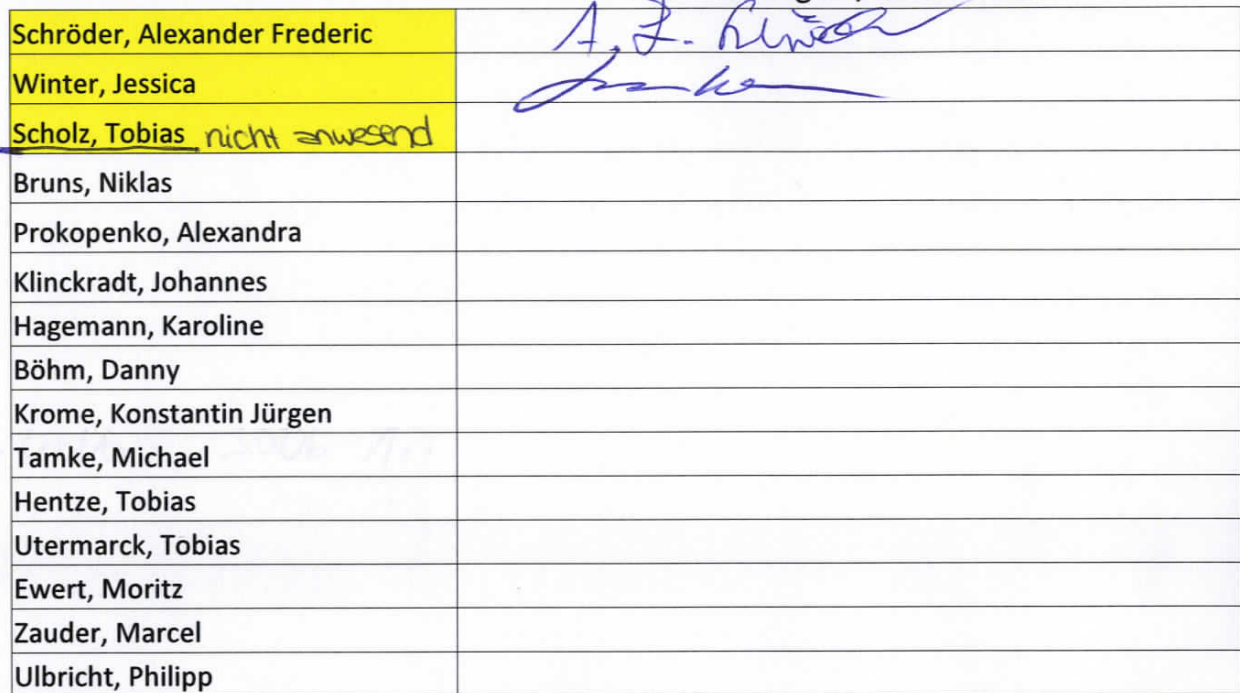 Schröder, Alexander Frederic A. F.
Winter, Jessica
Scholz, Tobias nicht anwesend
Bruns, Niklas
Prokopenko, Alexandra
Klinckradt, Johannes
Hagemann, Karoline
Böhm, Danny
Krome, Konstantin Jürgen
Tamke, Michael
Hentze, Tobias
Utermarck, Tobias
Ewert, Moritz
Zauder, Marcel
Ulbricht, Philipp